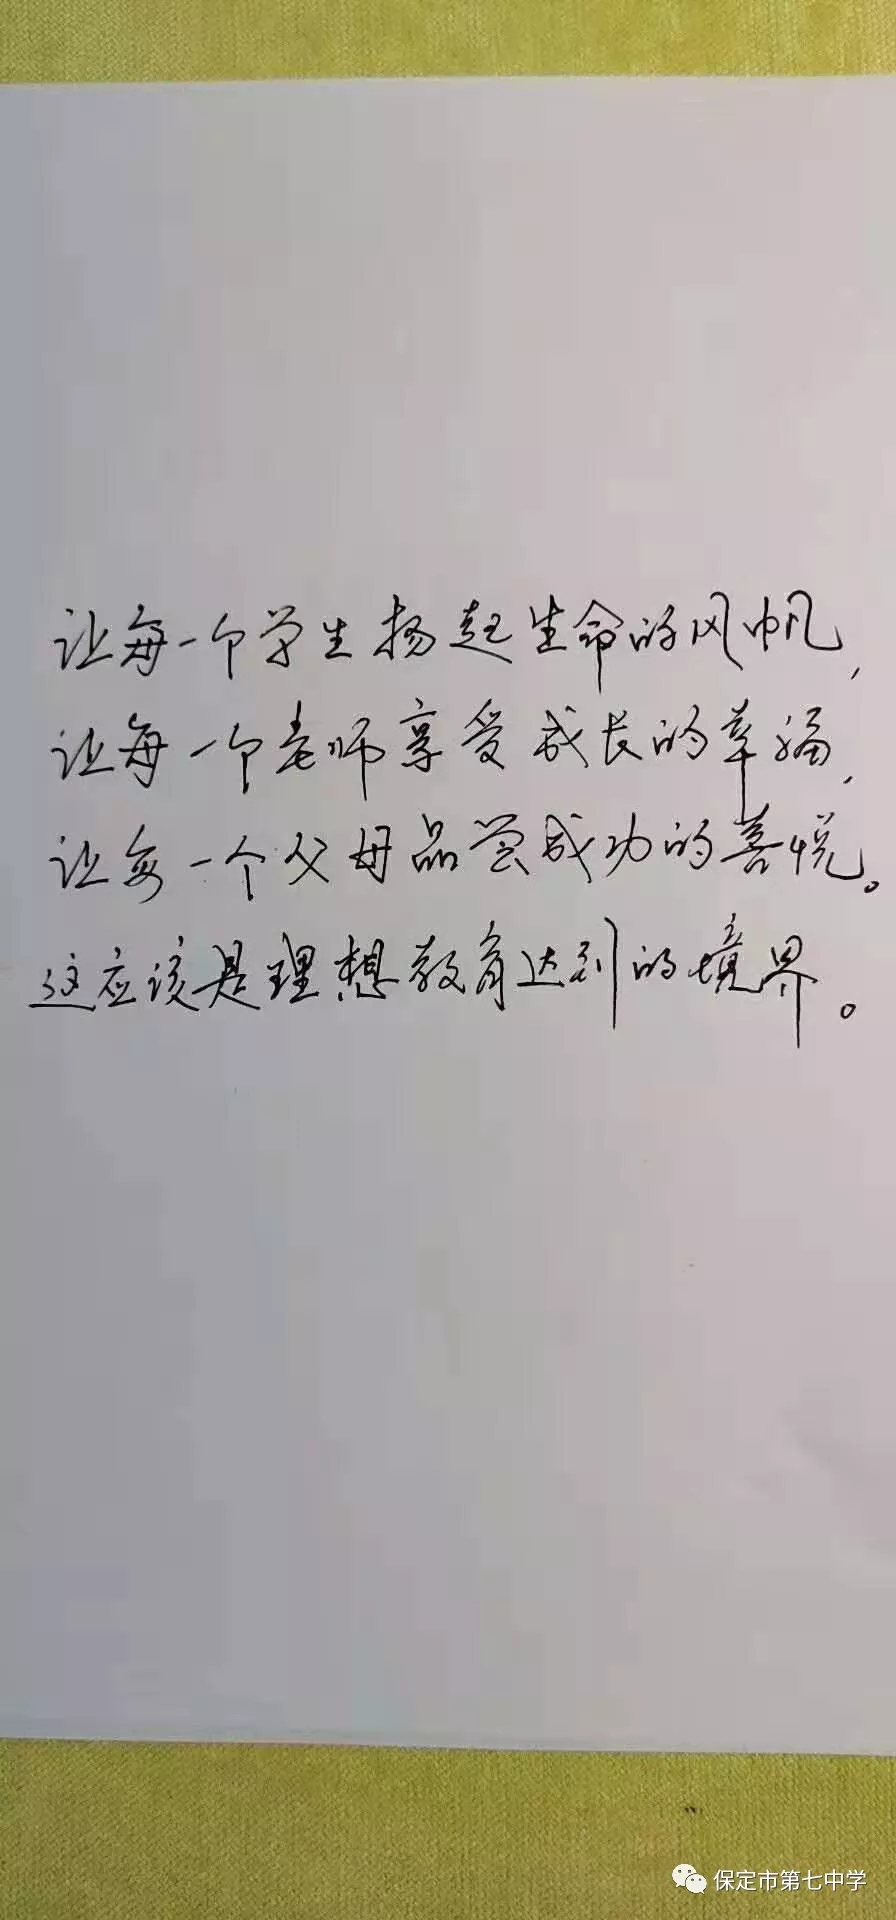 让每一个学生扬起生命的风帆,
让每一个老师享受成长的幸福,
让每一个父母品尝成功的喜悦。
这应该是理想教育达到的境界。
保定市第七中学